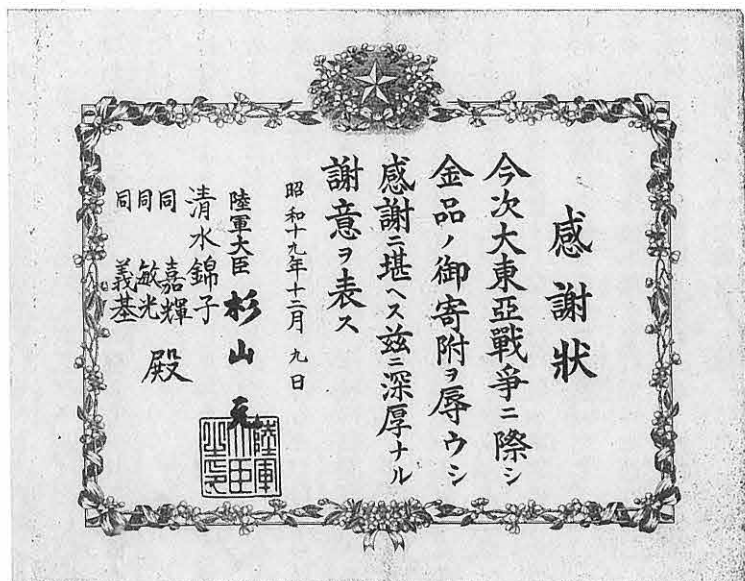 感謝狀
今次大東亞戰爭ニ際シ
金品ノ御寄附ヲ辱ウシ
感謝ニ堪ヘス茲ニ深厚ナル
謝意ヲ表ス
昭和十九年十二月九日
陸軍大臣 杉山元
陸軍大臣之印
清水錦子
同 嘉輝
同 敏光
同 義基
殿